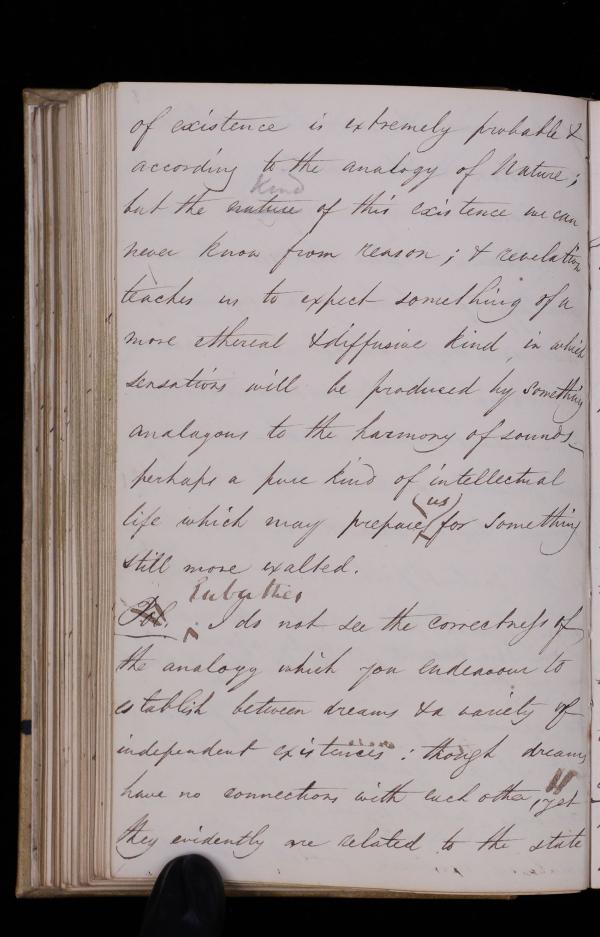 of existence is extremely probable &
according to the analogy of Nature;
kind
but the nature of this existence we can
never know from reason; & revelation
teaches us to expect something of a
more ethereal & diffusive kind, in which
sensations will be produced by something
analagous to the harmony of sounds_
perhaps a pure kind of intellectual
(us)
life which may prepare for something
still more exalted.
Eubathes
Pol. I do not see the correctness of
the analogy which you endeavour to
establish between dreams & a variety of
independent existences: though dreams
have no connections with each other, yet
they evidently are related to the state